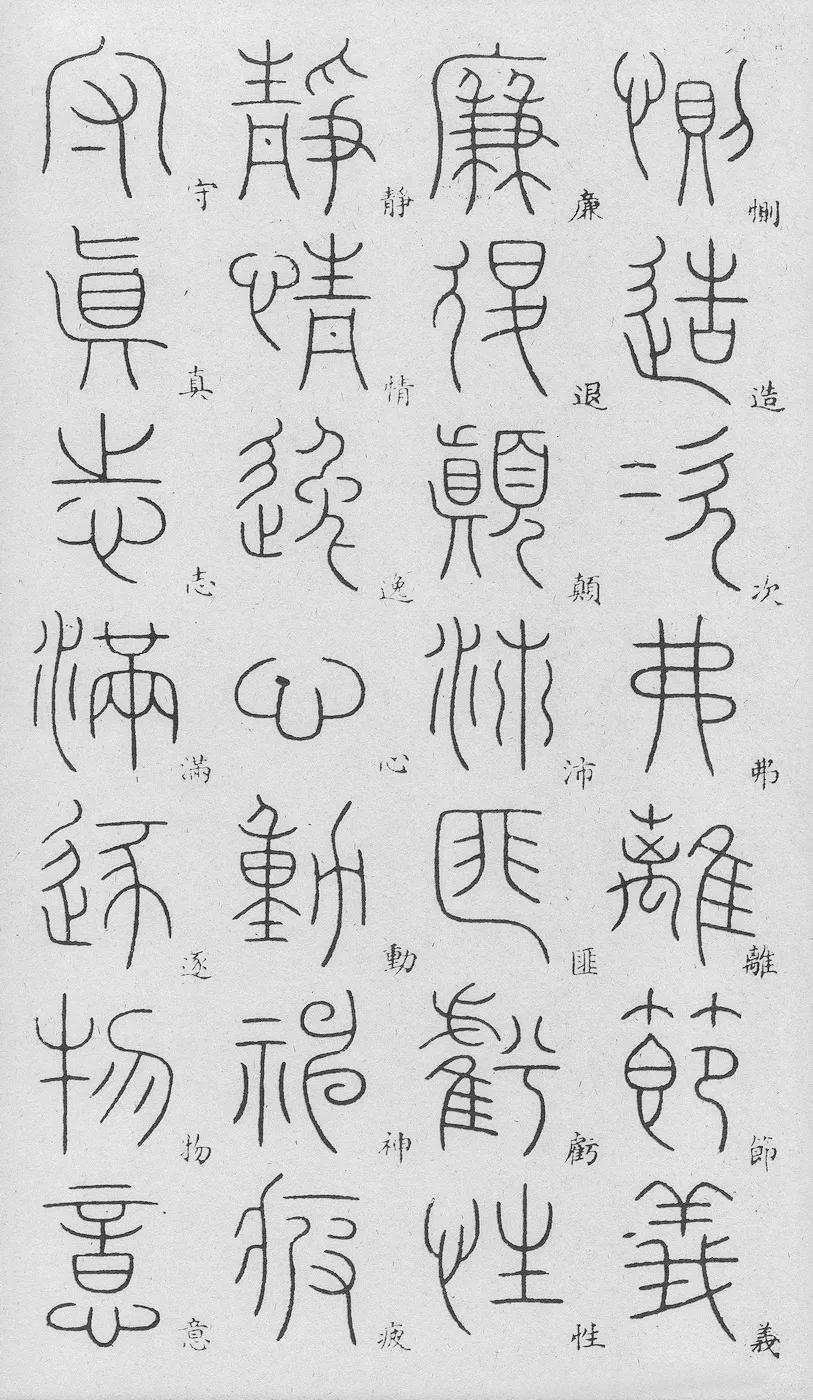 惻造次弗離節義
廉退顛沛匪虧性
靜情逸心動神疲
守真志滿逐物意